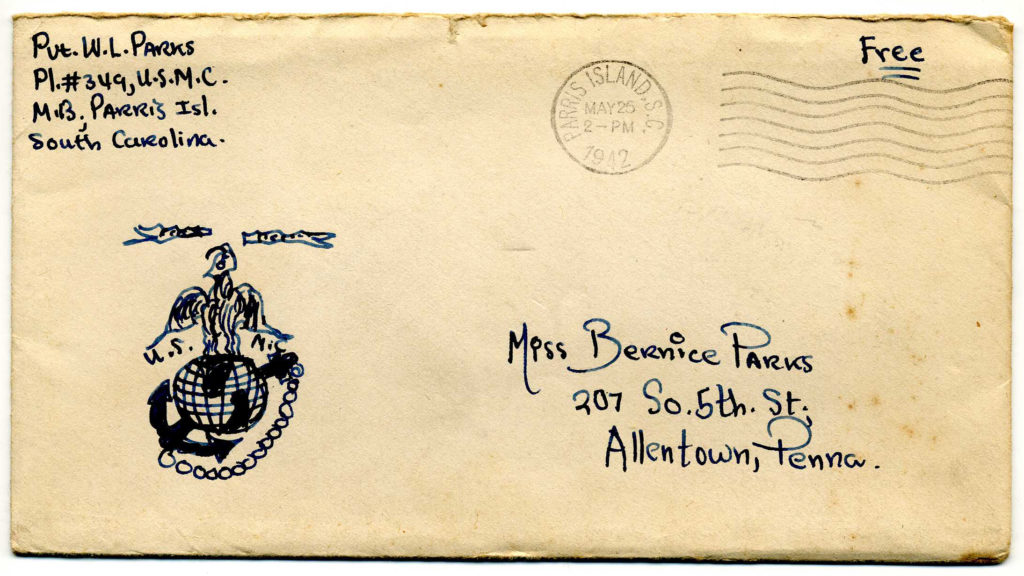 Pvt. W.L. Parks
Pl.#349, U.S.M.C.
M.B, Parris Isl.
South Carolina.
Free
PARRIS ISLAND, S.C.
MAY 25
2-PM
1942
U.S. M.C
Miss Bernice Parks
207 So. 5th. St,
Allentown, Penna.